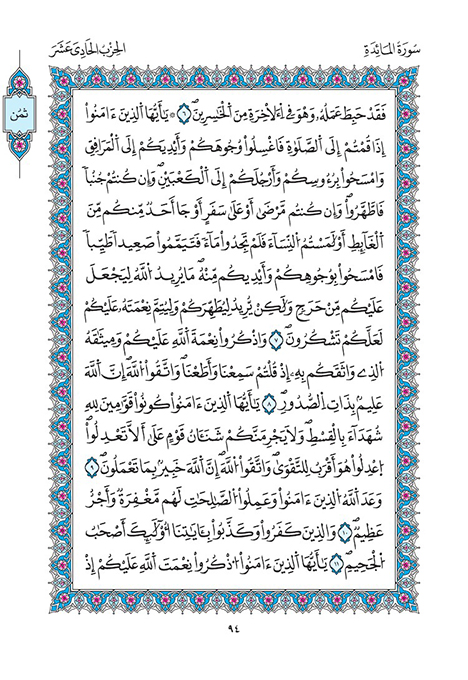 سُورَةُ المَائِدَةِ
الحِزْبُ الحَادِيَ عَشَرَ
ثُمُن
فَقَدْ حَبِطَ عَمَلُهُۥ وَهُوَ فِے اِ۬لَاخِرَةِ مِنَ اَ۬لْخَٰسِرِينَۖ ٦ ۞ يَٰٓأَيُّهَا اَ۬لذِينَ ءَامَنُوٓاْ
إِذَا قُمْتُمُۥٓ إِلَى اَ۬لصَّلَوٰةِ فَاغْسِلُواْ وُجُوهَكُمْ وَأَيْدِيَكُمُۥٓ إِلَى اَ۬لْمَرَافِقِ
وَامْسَحُواْ بِرُءُوسِكُمْ وَأَرْجُلَكُمُۥٓ إِلَى اَ۬لْكَعْبَيْنِۖ وَإِن كُنتُمْ جُنُباٗ
فَاطَّهَّرُواْۖ وَإِن كُنتُم مَّرْضَىٰٓ أَوْ عَلَىٰ سَفَرٍ اَوْ جَآءَ اَحَدٞ مِّنكُم مِّنَ
اَ۬لْغَآئِطِ أَوْ لَٰمَسْتُمُ اُ۬لنِّسَآءَ فَلَمْ تَجِدُواْ مَآءٗ فَتَيَمَّمُواْ صَعِيداٗ طَيِّباٗ
فَامْسَحُواْ بِوُجُوهِكُمْ وَأَيْدِيكُم مِّنْهُۖ مَا يُرِيدُ اُ۬للَّهُ لِيَجْعَلَ
عَلَيْكُم مِّنْ حَرَجٖ وَلَٰكِنْ يُّرِيدُ لِيُطَهِّرَكُمْ وَلِيُتِمَّ نِعْمَتَهُۥ عَلَيْكُمْ
لَعَلَّكُمْ تَشْكُرُونَۖ ٧ وَاذْكُرُواْ نِعْمَةَ اَ۬للَّهِ عَلَيْكُمْ وَمِيثَٰقَهُ
اُ۬لذِے وَاثَقَكُم بِهِۦٓ إِذْ قُلْتُمْ سَمِعْنَا وَأَطَعْنَاۖ وَاتَّقُواْ اُ۬للَّهَۖ إِنَّ اَ۬للَّهَ
عَلِيمُۢ بِذَاتِ اِ۬لصُّدُورِۖ ٨ يَٰٓأَيُّهَا اَ۬لذِينَ ءَامَنُواْ كُونُواْ قَوَّٰمِينَ لِلهِ
شُهَدَآءَ بِالْقِسْطِۖ وَلَا يَجْرِمَنَّكُمْ شَنَـَٔانُ قَوْمٍ عَلَىٰٓ أَلَّا تَعْدِلُواْۖ
اُ۪عْدِلُواْ هُوَ أَقْرَبُ لِلتَّقْوَىٰۖ وَاتَّقُواْ اُ۬للَّهَۖ إِنَّ اَ۬للَّهَ خَبِيرُۢ بِمَا تَعْمَلُونَۖ ٩
وَعَدَ اَ۬للَّهُ اُ۬لذِينَ ءَامَنُواْ وَعَمِلُواْ اُ۬لصَّٰلِحَٰتِ لَهُم مَّغْفِرَةٞ وَأَجْرٌ
عَظِيمٞۖ ١٠ وَالذِينَ كَفَرُواْ وَكَذَّبُواْ بِـَٔايَٰتِنَآ أُوْلَٰٓئِكَ أَصْحَٰبُ
اُ۬لْجَحِيمِۖ ١١ يَٰٓأَيُّهَا اَ۬لذِينَ ءَامَنُواْ اُ۟ذْكُرُواْ نِعْمَتَ اَ۬للَّهِ عَلَيْكُمُۥٓ إِذْ
٩٤